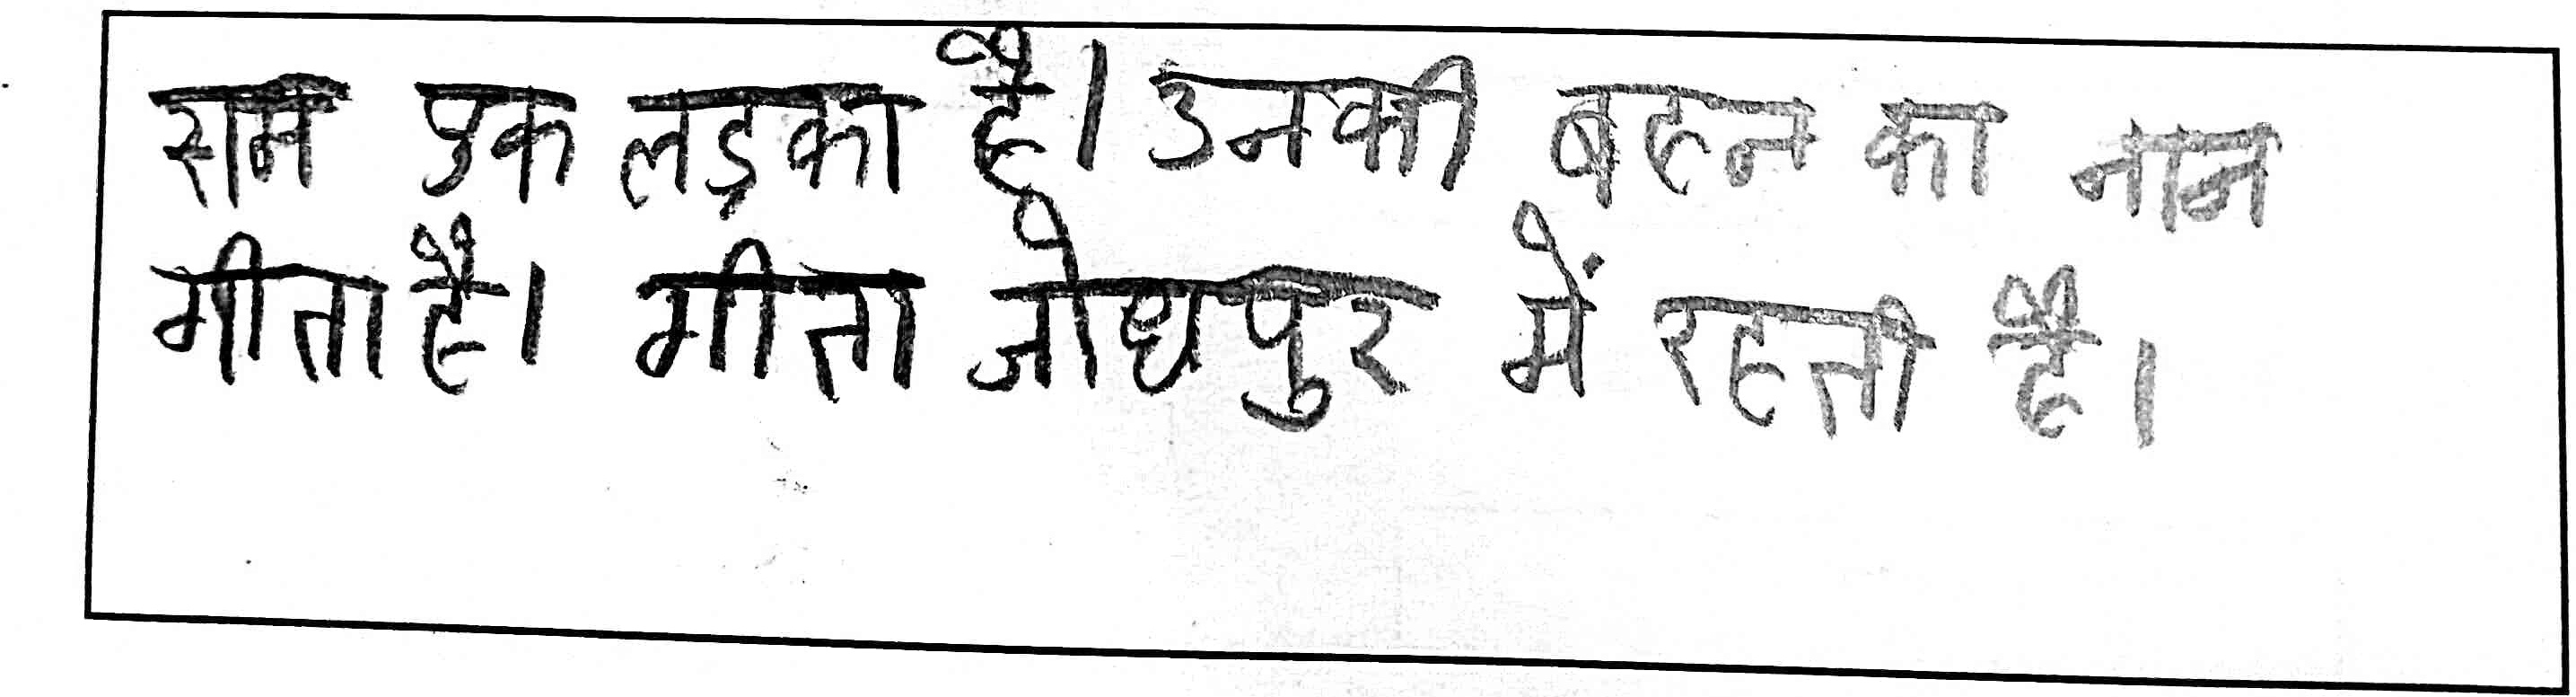 राम एक लड़का है। उनकी बहन का नाम
गीता है। गीता जोधपुर में रहती है।